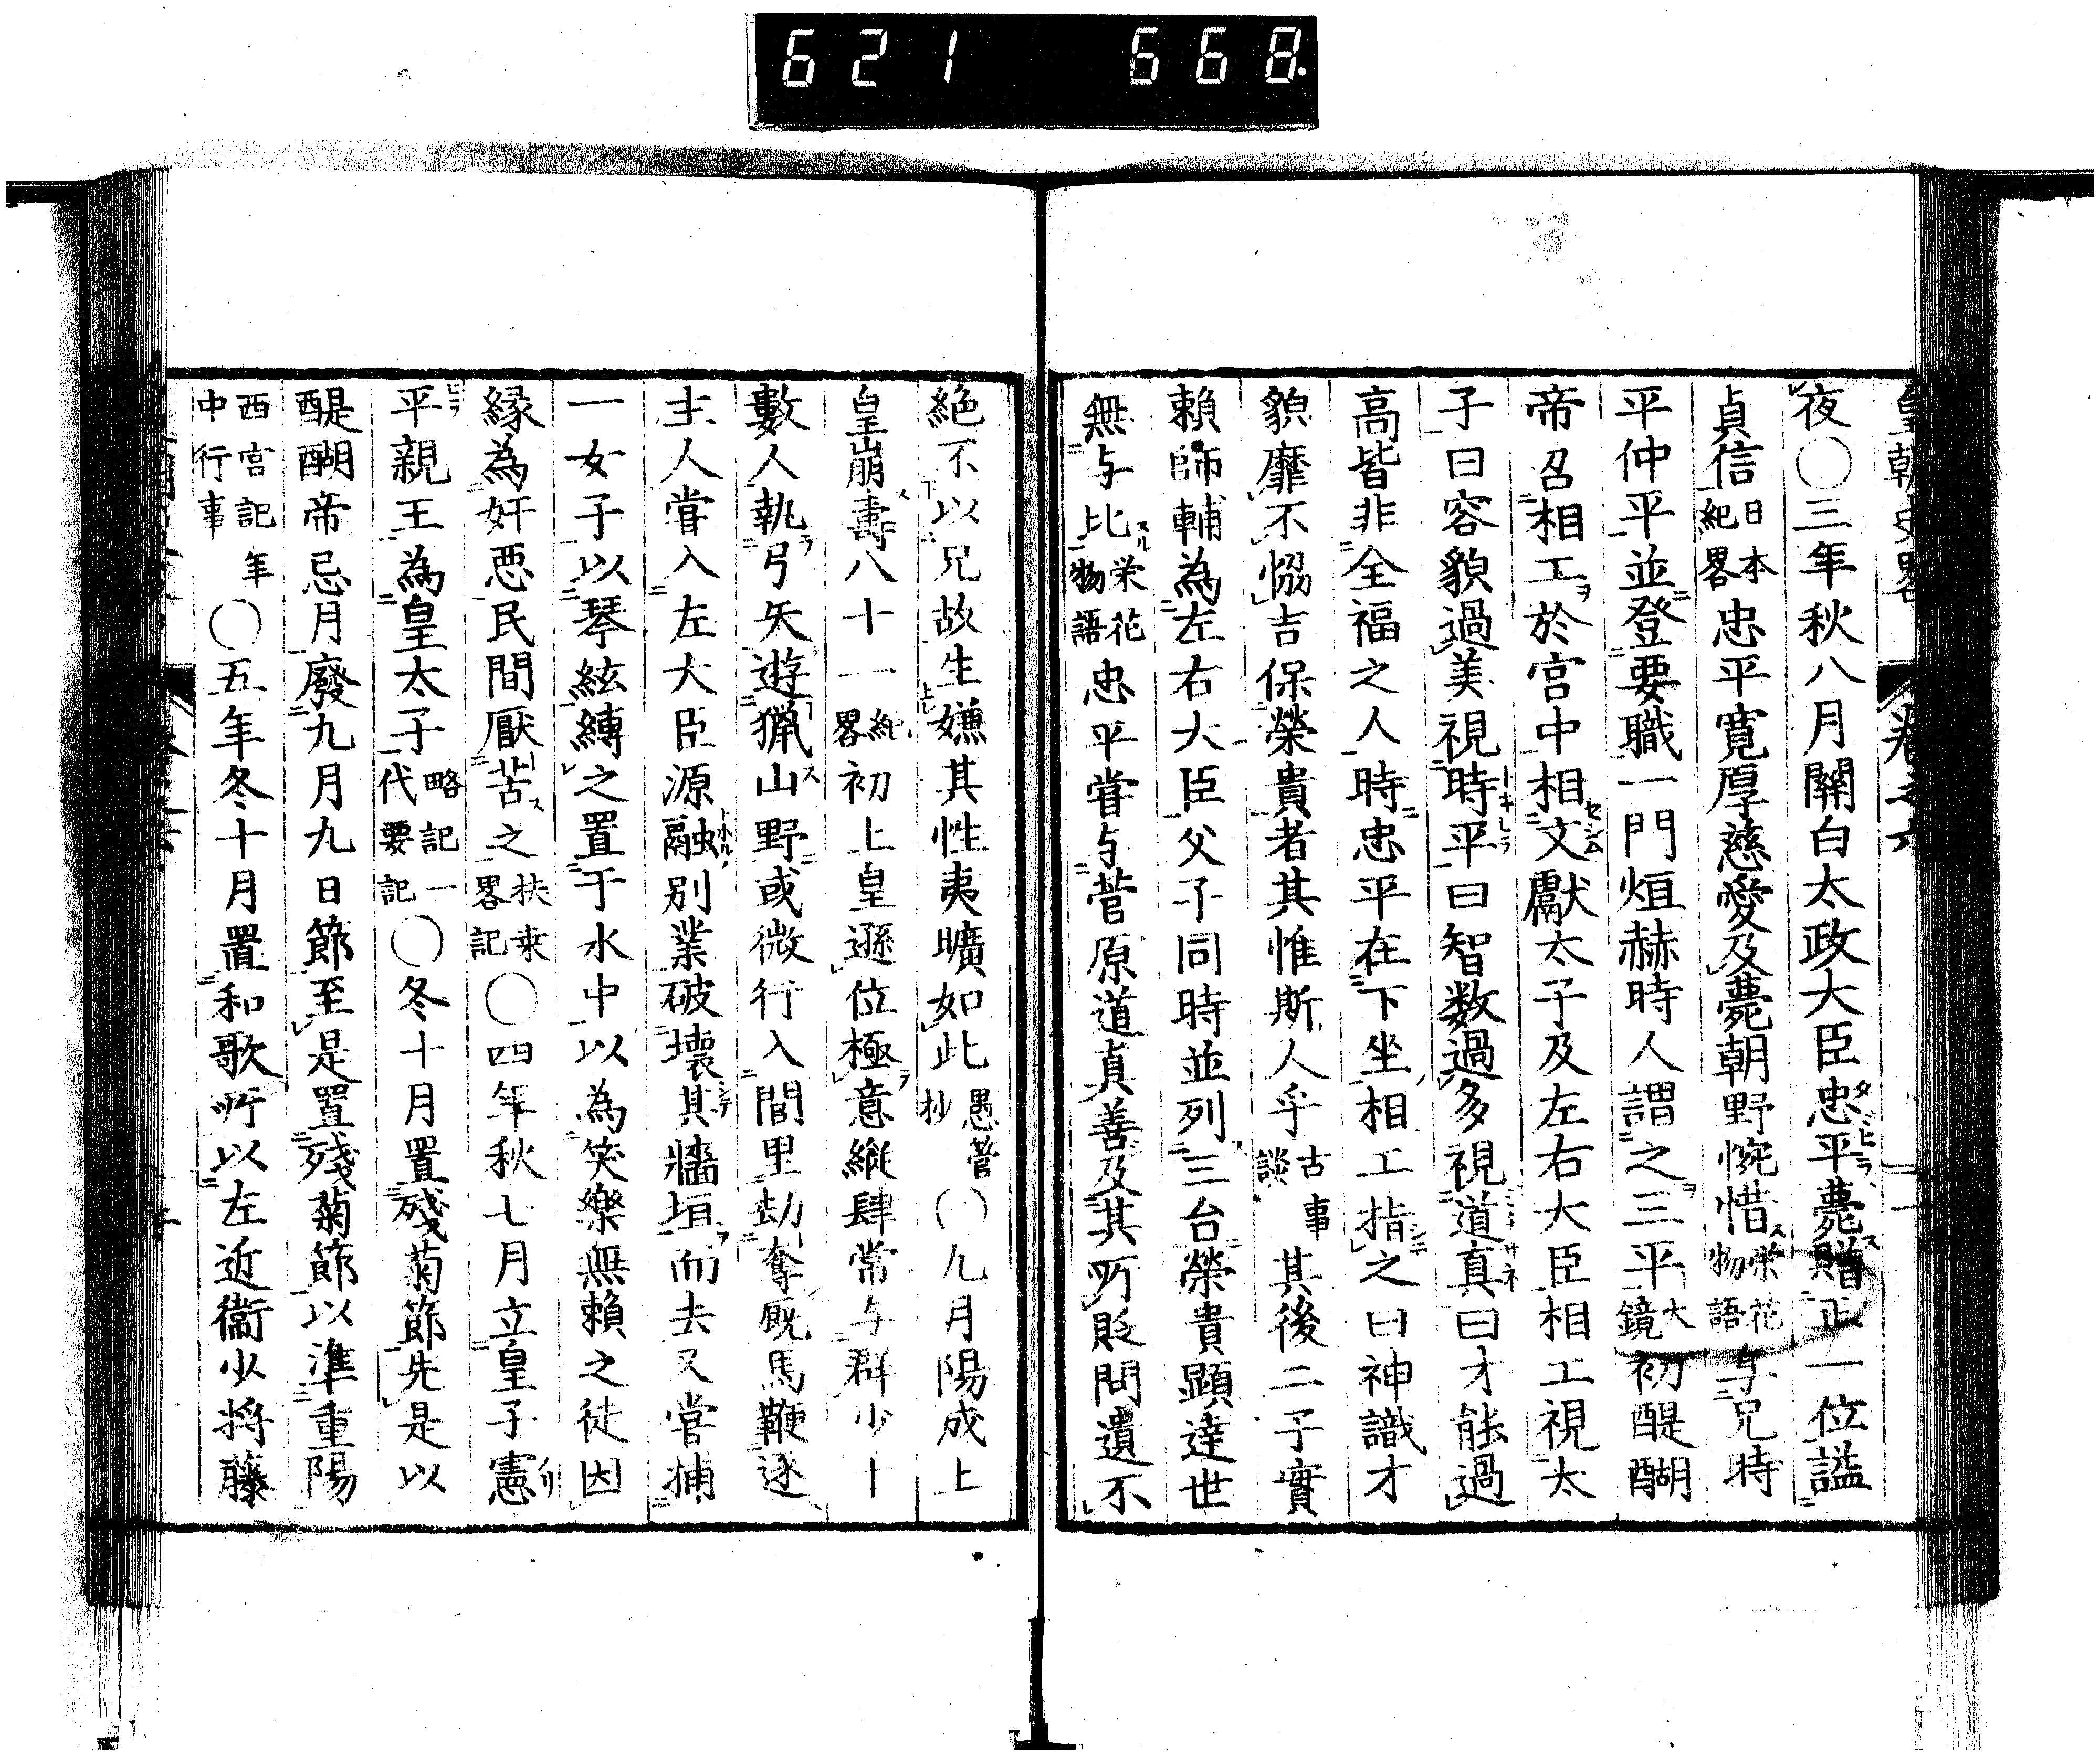 621 668.
皇朝史畧 卷之六
夜〇三年秋八月關白太政大臣忠平薨贈正一位謚
貞信日本紀畧忠平寛厚慈愛及薨朝野惋惜栄花物語与兄時
平仲平並登要職一門烜赫時人謂之三平大鏡初醍醐
帝召相工於宮中相文獻太子及左右大臣相工視太
子曰容貌過美視時平曰智数過多視道真曰才能過
高皆非全福之人時忠平在下坐相工指之曰神識才
貌靡不恊吉保榮貴者其惟斯人乎古事談其後二子實
賴師輔為左右大臣父子同時並列三台榮貴顯達世
無与比栄花物語忠平嘗与菅原道真善及其所貶問遺不
絶不以兄故生嫌其性夷曠如此愚管抄〇九月陽成上
皇崩壽八十一紀畧初上皇遜位極意縱肆常与群少十
數人執弓矢遊獵山野或微行入閭里劫奪厩馬鞭逐
主人嘗入左大臣源融別業破壞其牆垣而去又嘗捕
一女子以琴絃縛之置于水中以為笑樂無賴之徒因
縁為奸悪民間厭苦之扶桒畧記〇四年秋七月立皇子憲
平親王為皇太子略記一代要記〇冬十月置殘菊節先是以
醍醐帝忌月廢九月九日節至是置殘菊節以準重陽
西宮記年中行事〇五年冬十月置和歌所以左近衞少将藤